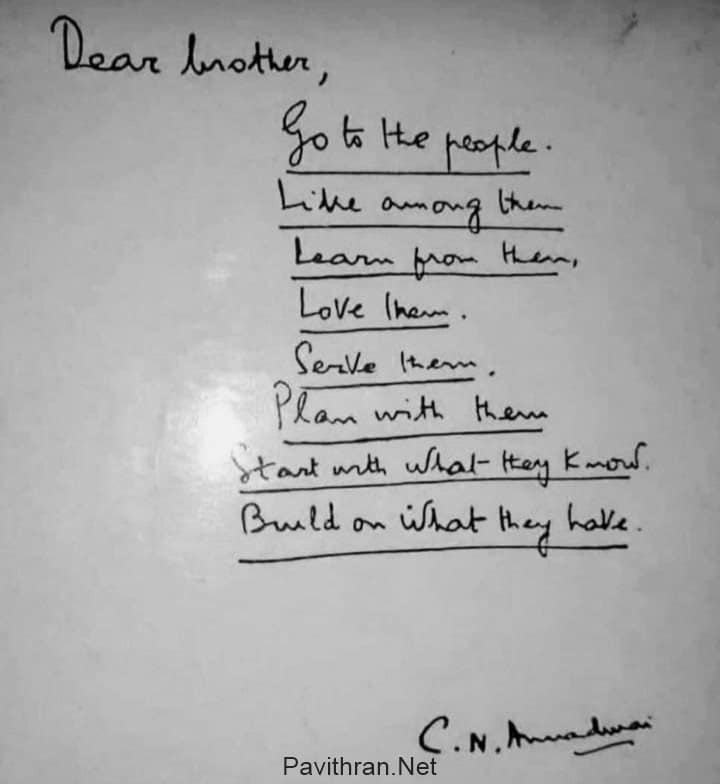 Dear brother,
Go to the people.
Live among them
Learn from them,
Love them.
Serve them.
Plan with them
Start with what they know.
Build on what they have.
C.N. Annadurai
Pavithran.Net